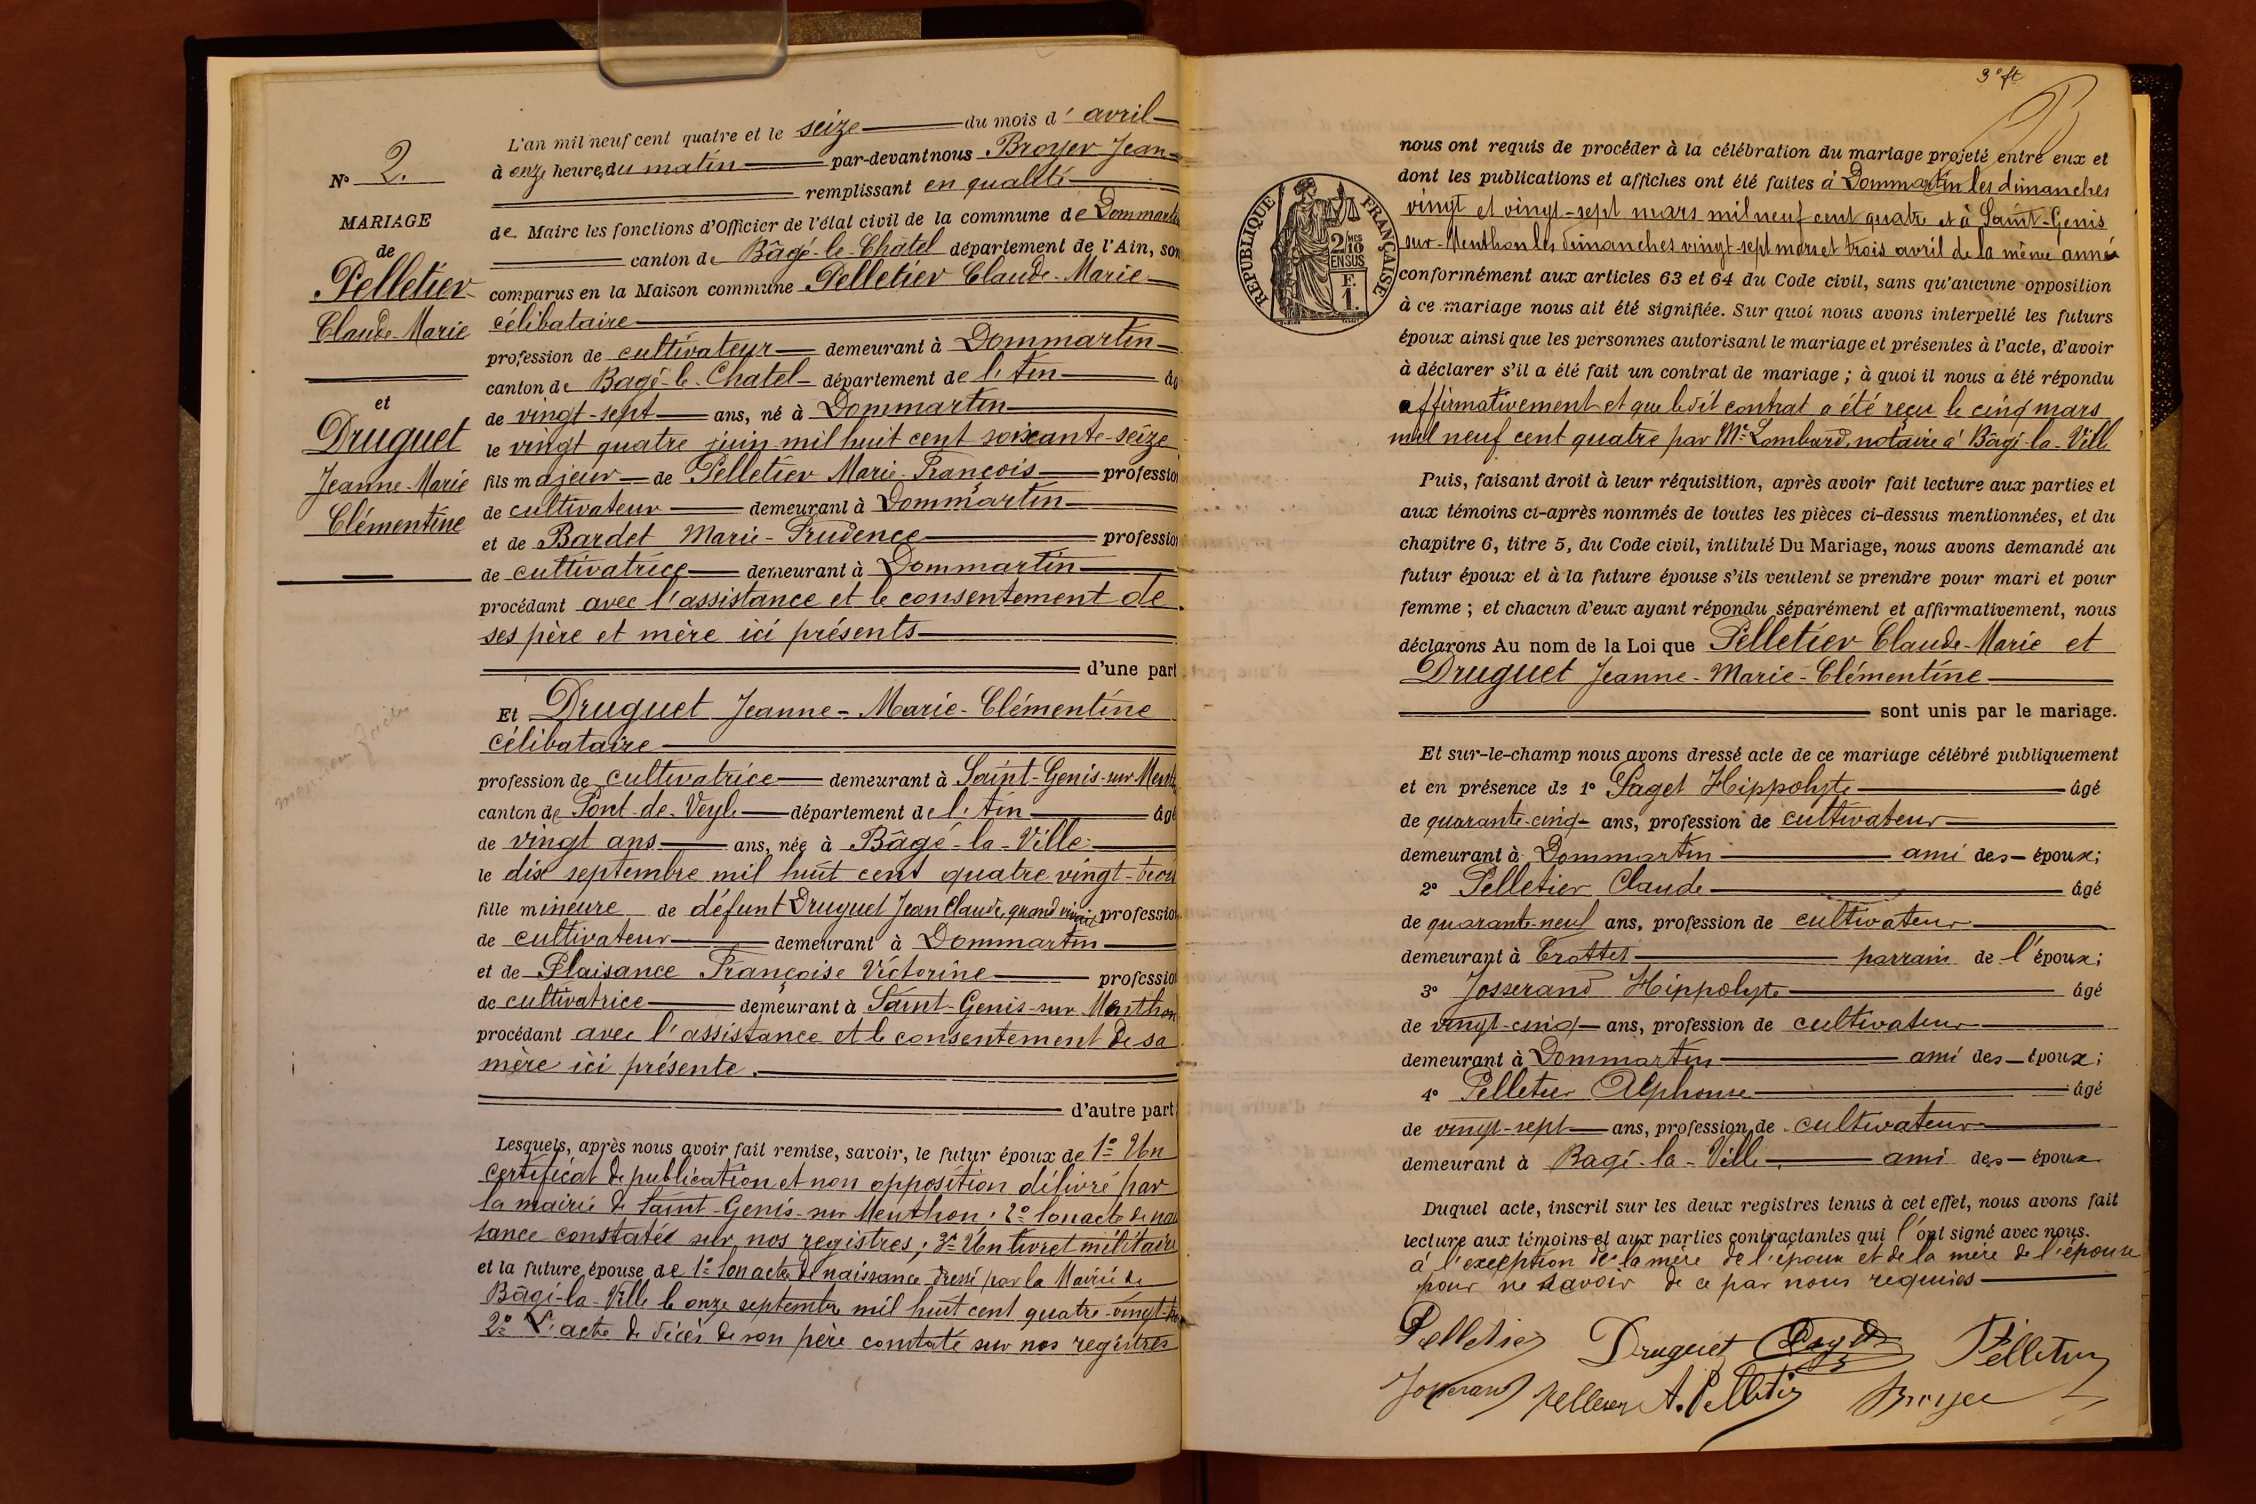 L'an mil neuf cent quatre et le seize du mois d'avril
à onze heures du matin par-devant nous Broyer Jean
remplissant en qualité
de Maire les fonctions d'Officier de l'état civil de la commune de Dommartin
canton de Bâgé-le-Châtel département de l'Ain, son
comparus en la Maison commune Pelletier Claude-Marie
célibataire
profession de cultivateur demeurant à Dommartin
canton de Bagé-le-Chatel département de l'Ain âg
de vingt-sept ans, né à Dommartin
le vingt quatre juin mil huit cent soixante-seize
fils majeur de Pelletier Marie-François profession
de cultivateur demeurant à Dommartin
et de Bardet Marie-Prudence profession
de cultivatrice demeurant à Dommartin
procédant avec l'assistance et le consentement de
ses père et mère ici présents
d'une part
Et Druguet Jeanne-Marie-Clémentine
célibataire
profession de cultivatrice demeurant à Saint-Genis-sur Menth
canton de Pont-de-Veyle département de l'Ain âgé
de vingt ans ans, née à Bâgé-la-Ville
le dix septembre mil huit cent quatre vingt-trois
fille mineure de défunt Druguet Jean Claude, quand vivait profession
de cultivateur demeurant à Dommartin
et de Plaisance Françoise Victorine profession
de cultivatrice demeurant à Saint-Genis-sur Menthon
procédant avec l'assistance et le consentement de sa
mère ici présente.
d'autre part
Lesquels, après nous avoir fait remise, savoir, le futur époux de 1º Un
certificat de publication et non opposition délivré par
la mairie de Saint-Genis-sur Menthon; 2º Son acte de nais
sance constatée sur nos registres; 3º Un livret militaire
et la future épouse de 1º Son acte de naissance dressé par la Mairie de
Bâgé-la-Ville le onze septembre mil huit cent quatre-vingt-tro
2º L'acte de décès de son père constaté sur nos registres
Nº 2.
MARIAGE
de
Pelletier
Claude-Marie
et
Druguet
Jeanne-Marie
Clémentine
3º ft
nous ont requis de procéder à la célébration du mariage projeté entre eux et
dont les publications et affiches ont été faites à Dommartin les dimanches
vingt et vingt-sept mars mil neuf cent quatre et à Saint-Genis
sur-Menthon les dimanches vingt-sept mars et trois avril de la même année
conformément aux articles 63 et 64 du Code civil, sans qu'aucune opposition
à ce mariage nous ait été signifiée. Sur quoi nous avons interpellé les futurs
époux ainsi que les personnes autorisant le mariage et présentes à l'acte, d'avoir
à déclarer s'il a été fait un contrat de mariage; à quoi il nous a été répondu
affirmativement et que ledit contrat a été reçu le cinq mars
mil neuf cent quatre par Me Lombard, notaire à Bâgé-la-Ville
Puis, faisant droit à leur réquisition, après avoir fait lecture aux parties et
aux témoins ci-après nommés de toutes les pièces ci-dessus mentionnées, et du
chapitre 6, titre 5, du Code civil, intitulé Du Mariage, nous avons demandé au
futur époux et à la future épouse s'ils veulent se prendre pour mari et pour
femme; et chacun d'eux ayant répondu séparément et affirmativement, nous
déclarons Au nom de la Loi que Pelletier Claude-Marie et
Druguet Jeanne-Marie-Clémentine
sont unis par le mariage.
Et sur-le-champ nous avons dressé acte de ce mariage célébré publiquement
et en présence de 1º Paget Hippolyte âgé
de quarante-cinq ans, profession de cultivateur
demeurant à Dommartin ami des époux;
2º Pelletier Claude âgé
de quarante-neuf ans, profession de cultivateur
demeurant à Crottet parrain de l'époux;
3º Josserand Hippolyte âgé
de vingt-cinq ans, profession de cultivateur
demeurant à Dommartin ami des époux;
4º Pelletier Alphonse âgé
de vingt-sept ans, profession de cultivateur
demeurant à Bagé-la-Ville ami des époux
Duquel acte, inscrit sur les deux registres tenus à cet effet, nous avons fait
lecture aux témoins et aux parties contractantes qui l'ont signé avec nous.
à l'exception de la mère de l'époux et de la mère de l'épouse
pour ne savoir de ce par nous requises
Pelletier Druguet Paget Pelletier
Josserand Pelletier A. Pelletier Broyer
RÉPUBLIQUE FRANÇAISE
2/10 MES
EN SUS
F.
1.